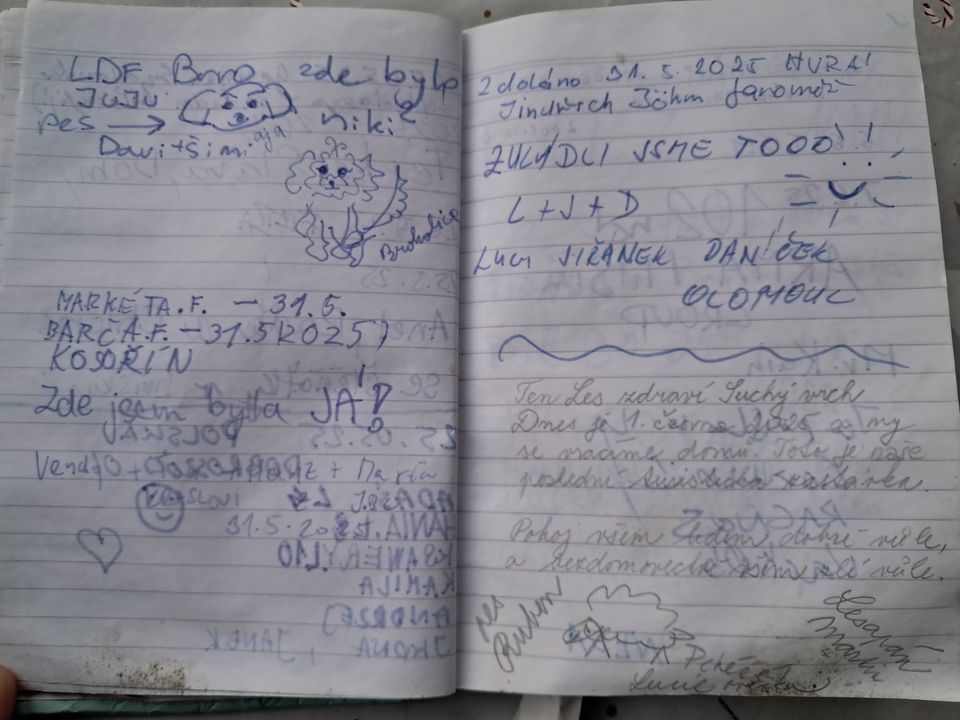 LDF Brno zde bylo
JuJu
pes → niki
Davit+Šimi
aja
Brokolice
MARKÉTA.F. - 31.5.
BARČA.F. - 31.5 (2025)
KOSOŘÍN
Zde jsem byla JÁ!
Vendy + + Maria
SLOVI
31.5.2025
Zdoláno 31.5.2025 HURÁ!
Jindřich Böhm Jaroměř
ZVLÁDLI JSME TOOO!!!
L + J + D
Luci JIŘÁNEK DANÍČEK
OLOMOUC
Ten Les zdraví Suchý vrch
Dnes je 1. června 2025 a my
se vracíme domů. Toto je naše
poslední turistická zastávka.
Pokoj všem lidem dobré vůle,
a bezdomovectví všem zlé vůle.
pes
Lesan
Martin
Lucie